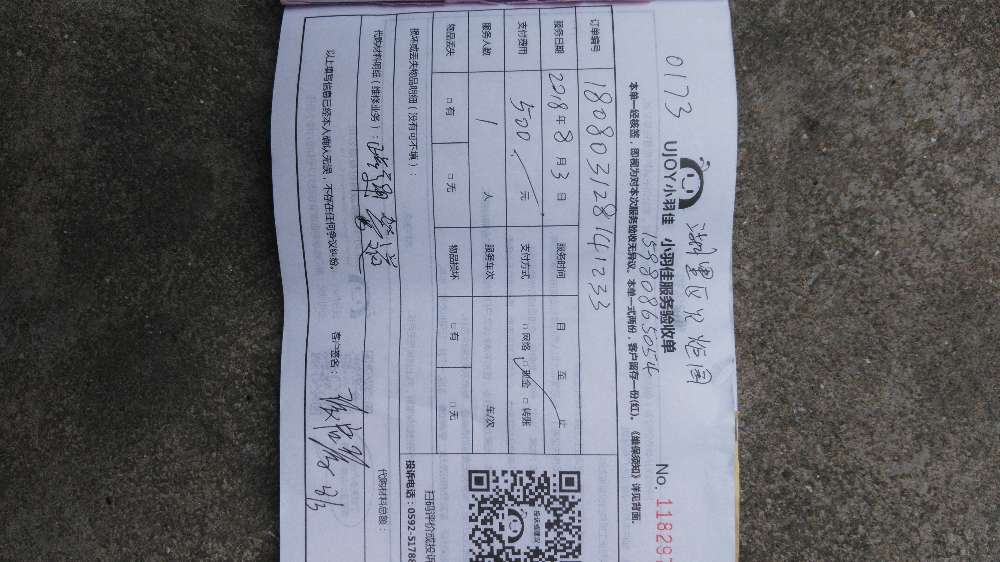 0173
湖里区火炬园
15980865054
UJOY小羽佳 小羽佳服务验收单
No. 11829
本单一经核签，即视为对本次服务验收无异议。本单一式两份，客户留存一份(红)。《维保须知》详见背面。
订单编号 180803128141233
服务日期 2018年8月3日 服务时间 日 至 止
支付费用 500 元 支付方式 □网络 □现金 □转账
服务人数 1 人 服务车次 车/次
物品丢失 □有 □无 物品损坏 □有 □无
损坏或丢失物品明细（没有可不填）：
扫码评价或投诉
投诉电话：0592-5178
代购材料明细（维修业务）：
代购材料总额：
以上填写信息已经本人确认无误，不存在任何争议纠纷。 客户签名：
投诉或建议